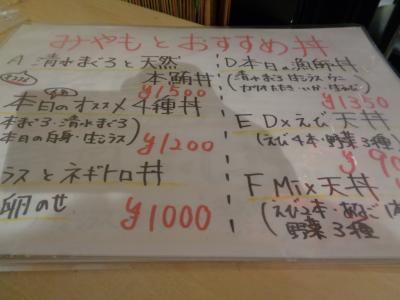 みやもとおすすめ丼
A 清水まぐろと天然
本鮪丼
¥1500
本日のオススメ4種丼
本まぐろ・清水まぐろ
本日の白身・生シラス
¥1200
ラスとネギトロ丼
卵のせ
¥1000
D 本日の漁師丼
(清水まぐろ 生シラス ウニ
カツオたたき・いか・生えび)
¥1350
E Dxえび天丼
(えび4本・野菜3種)
¥90
F Mix天丼
(えび2本・あなご1
野菜3種